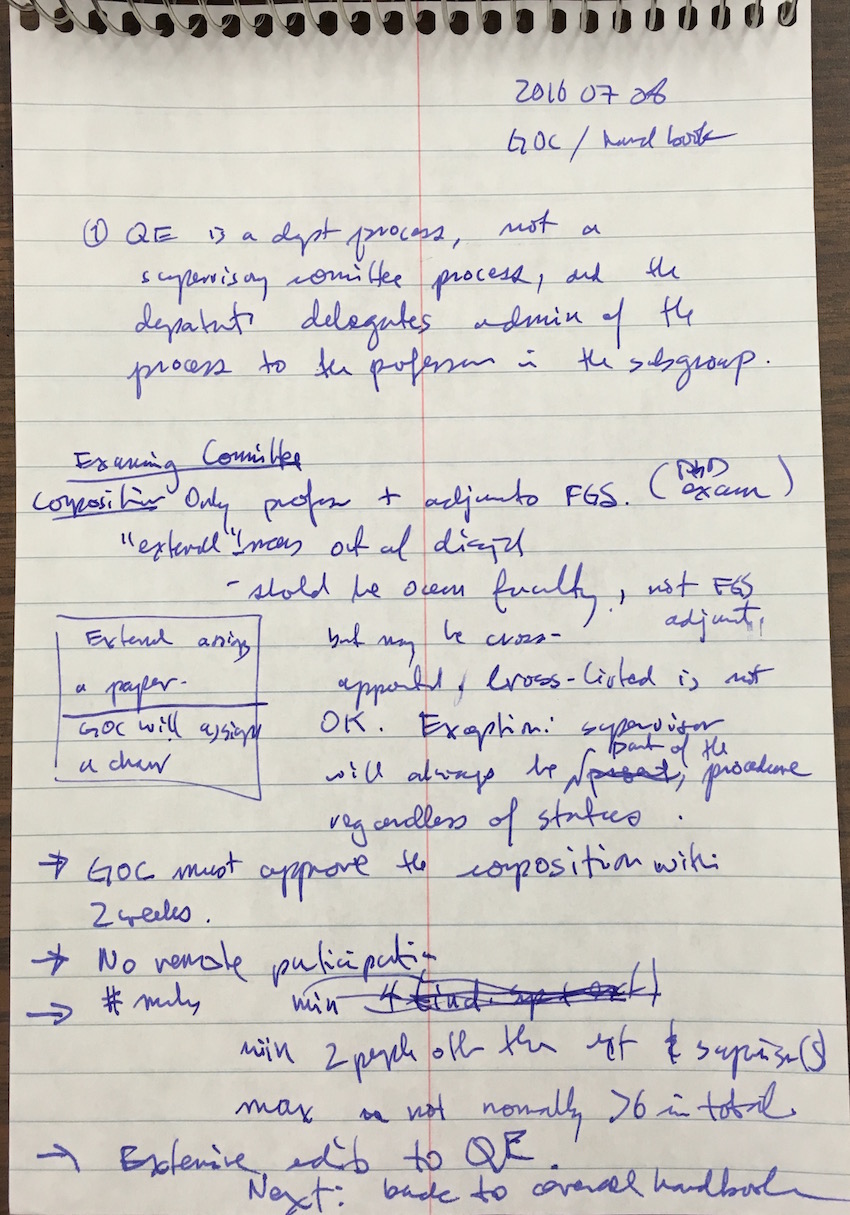 2016 07 28
GOC / handbook
① QE is a dept process, not a
supervisory committee process, and the
department delegates admin of the
process to the professors in the subgroup.
Examining Committee
Composition Only profess + adjuncts FGS. (PhD exam)
"external" means out of
- should be ocean faculty, not FGS
adjunct,
but may be cross-
appointed, Cross-listed is not
OK. Exception: supervisor
will always be part of the procedure
regardless of status.
External assigns
a paper.
GOC will assign
a chair
→ GOC must approve the composition within
2 weeks.
→ No remote participation
→ # min
min 2 people other than ext & supervisor(s)
max not normally >6 in total.
→ Extensive edits to QE.
Next: back to overall handbook